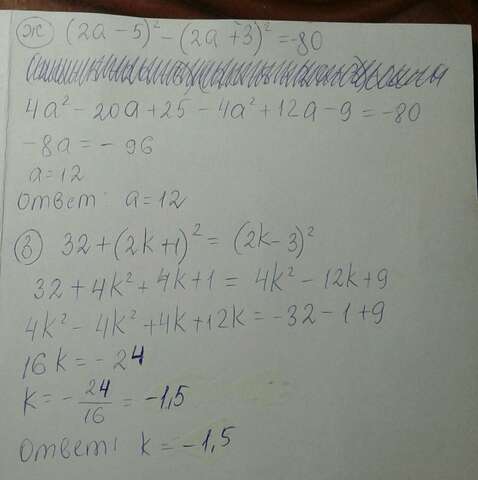 ж) (2a - 5)² - (2a + 3)² = -80
4a² - 20a + 25 - 4a² + 12a - 9 = -80
-8a = - 96
a = 12
Ответ: a = 12
з) 32 + (2k + 1)² = (2k - 3)²
32 + 4k² + 4k + 1 = 4k² - 12k + 9
4k² - 4k² + 4k + 12k = -32 - 1 + 9
16k = - 24
k = - 24/16 = -1,5
Ответ: k = -1,5